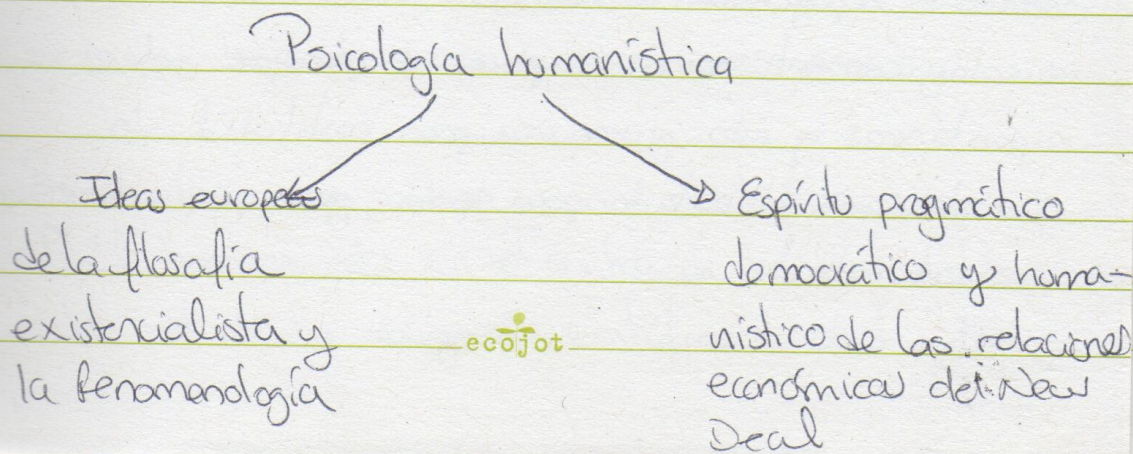 Psicología humanística
Ideas europeas
de la filosofía
existencialista y
la fenomenología
ecojot
Espíritu pragmático
democrático y huma-
nístico de las relaciones
económicas del New
Deal